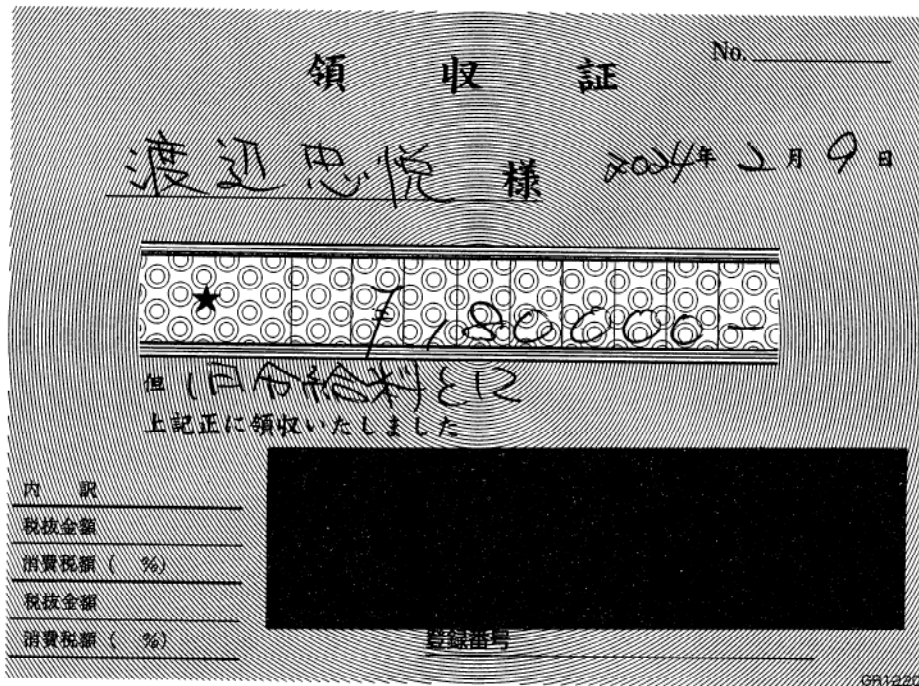 領収証
No.
渡辺忠悦 様 2024年 2月 9日
★ ¥,80000-
但 1月分給料として
上記正に領収いたしました
内訳
税抜金額
消費税額( %)
税抜金額
消費税額( %)
登録番号
GR1220